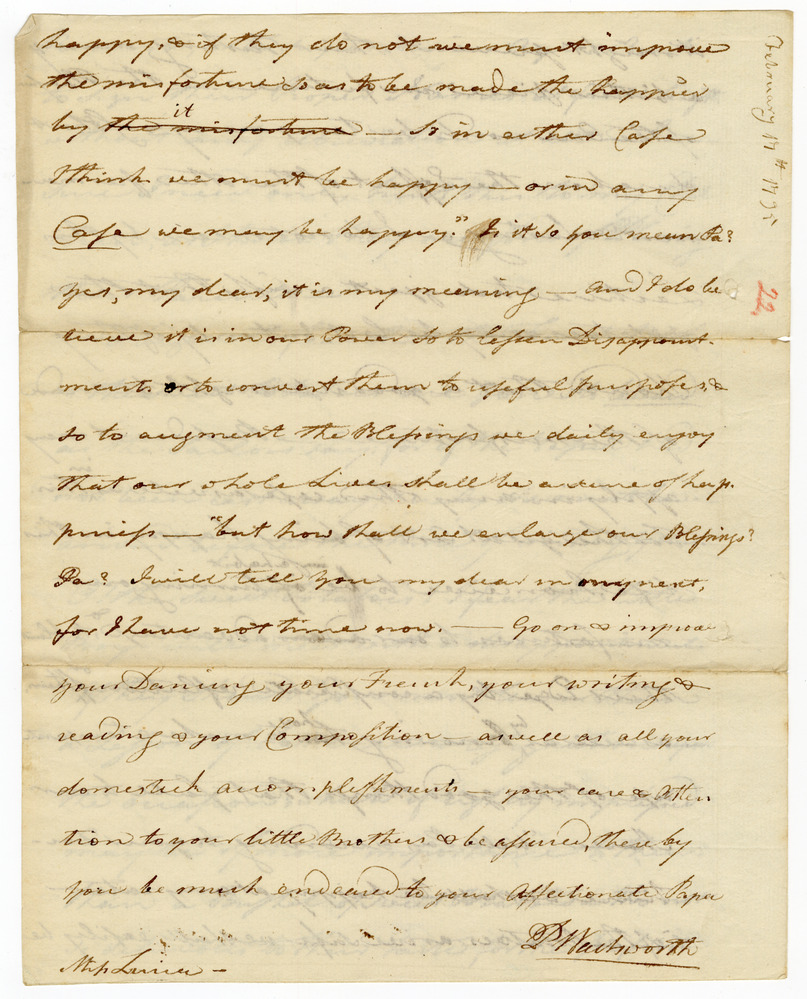 happy, & if they do not we must improve
the misfortune so as to be made the happier
by the misfortune it — So in either Case
I think we must be happy — or in any
Case we may be happy." Is it so you mean Pa?
yes, my dear, it is my meaning — and I do be
lieve it is in our Power so to lessen Disappoint-
ments or to convert them to useful purposes, &
so to augment the Blessings we daily enjoy
that our whole Lives shall be a scene of hap-
piness — "but how shall we enlarge our Blessings?
Pa? I will tell you my dear in my next,
for I have not time now. — Go on & improve
your Dancing your French, your writing &
reading & your Composition — as well as all your
domestick accomplishments — your care & Atten
tion to your little Brothers & be assured, there by
you be much endeared to your Affectionate Papa
P Wadsworth
Miss
February 1795
22.